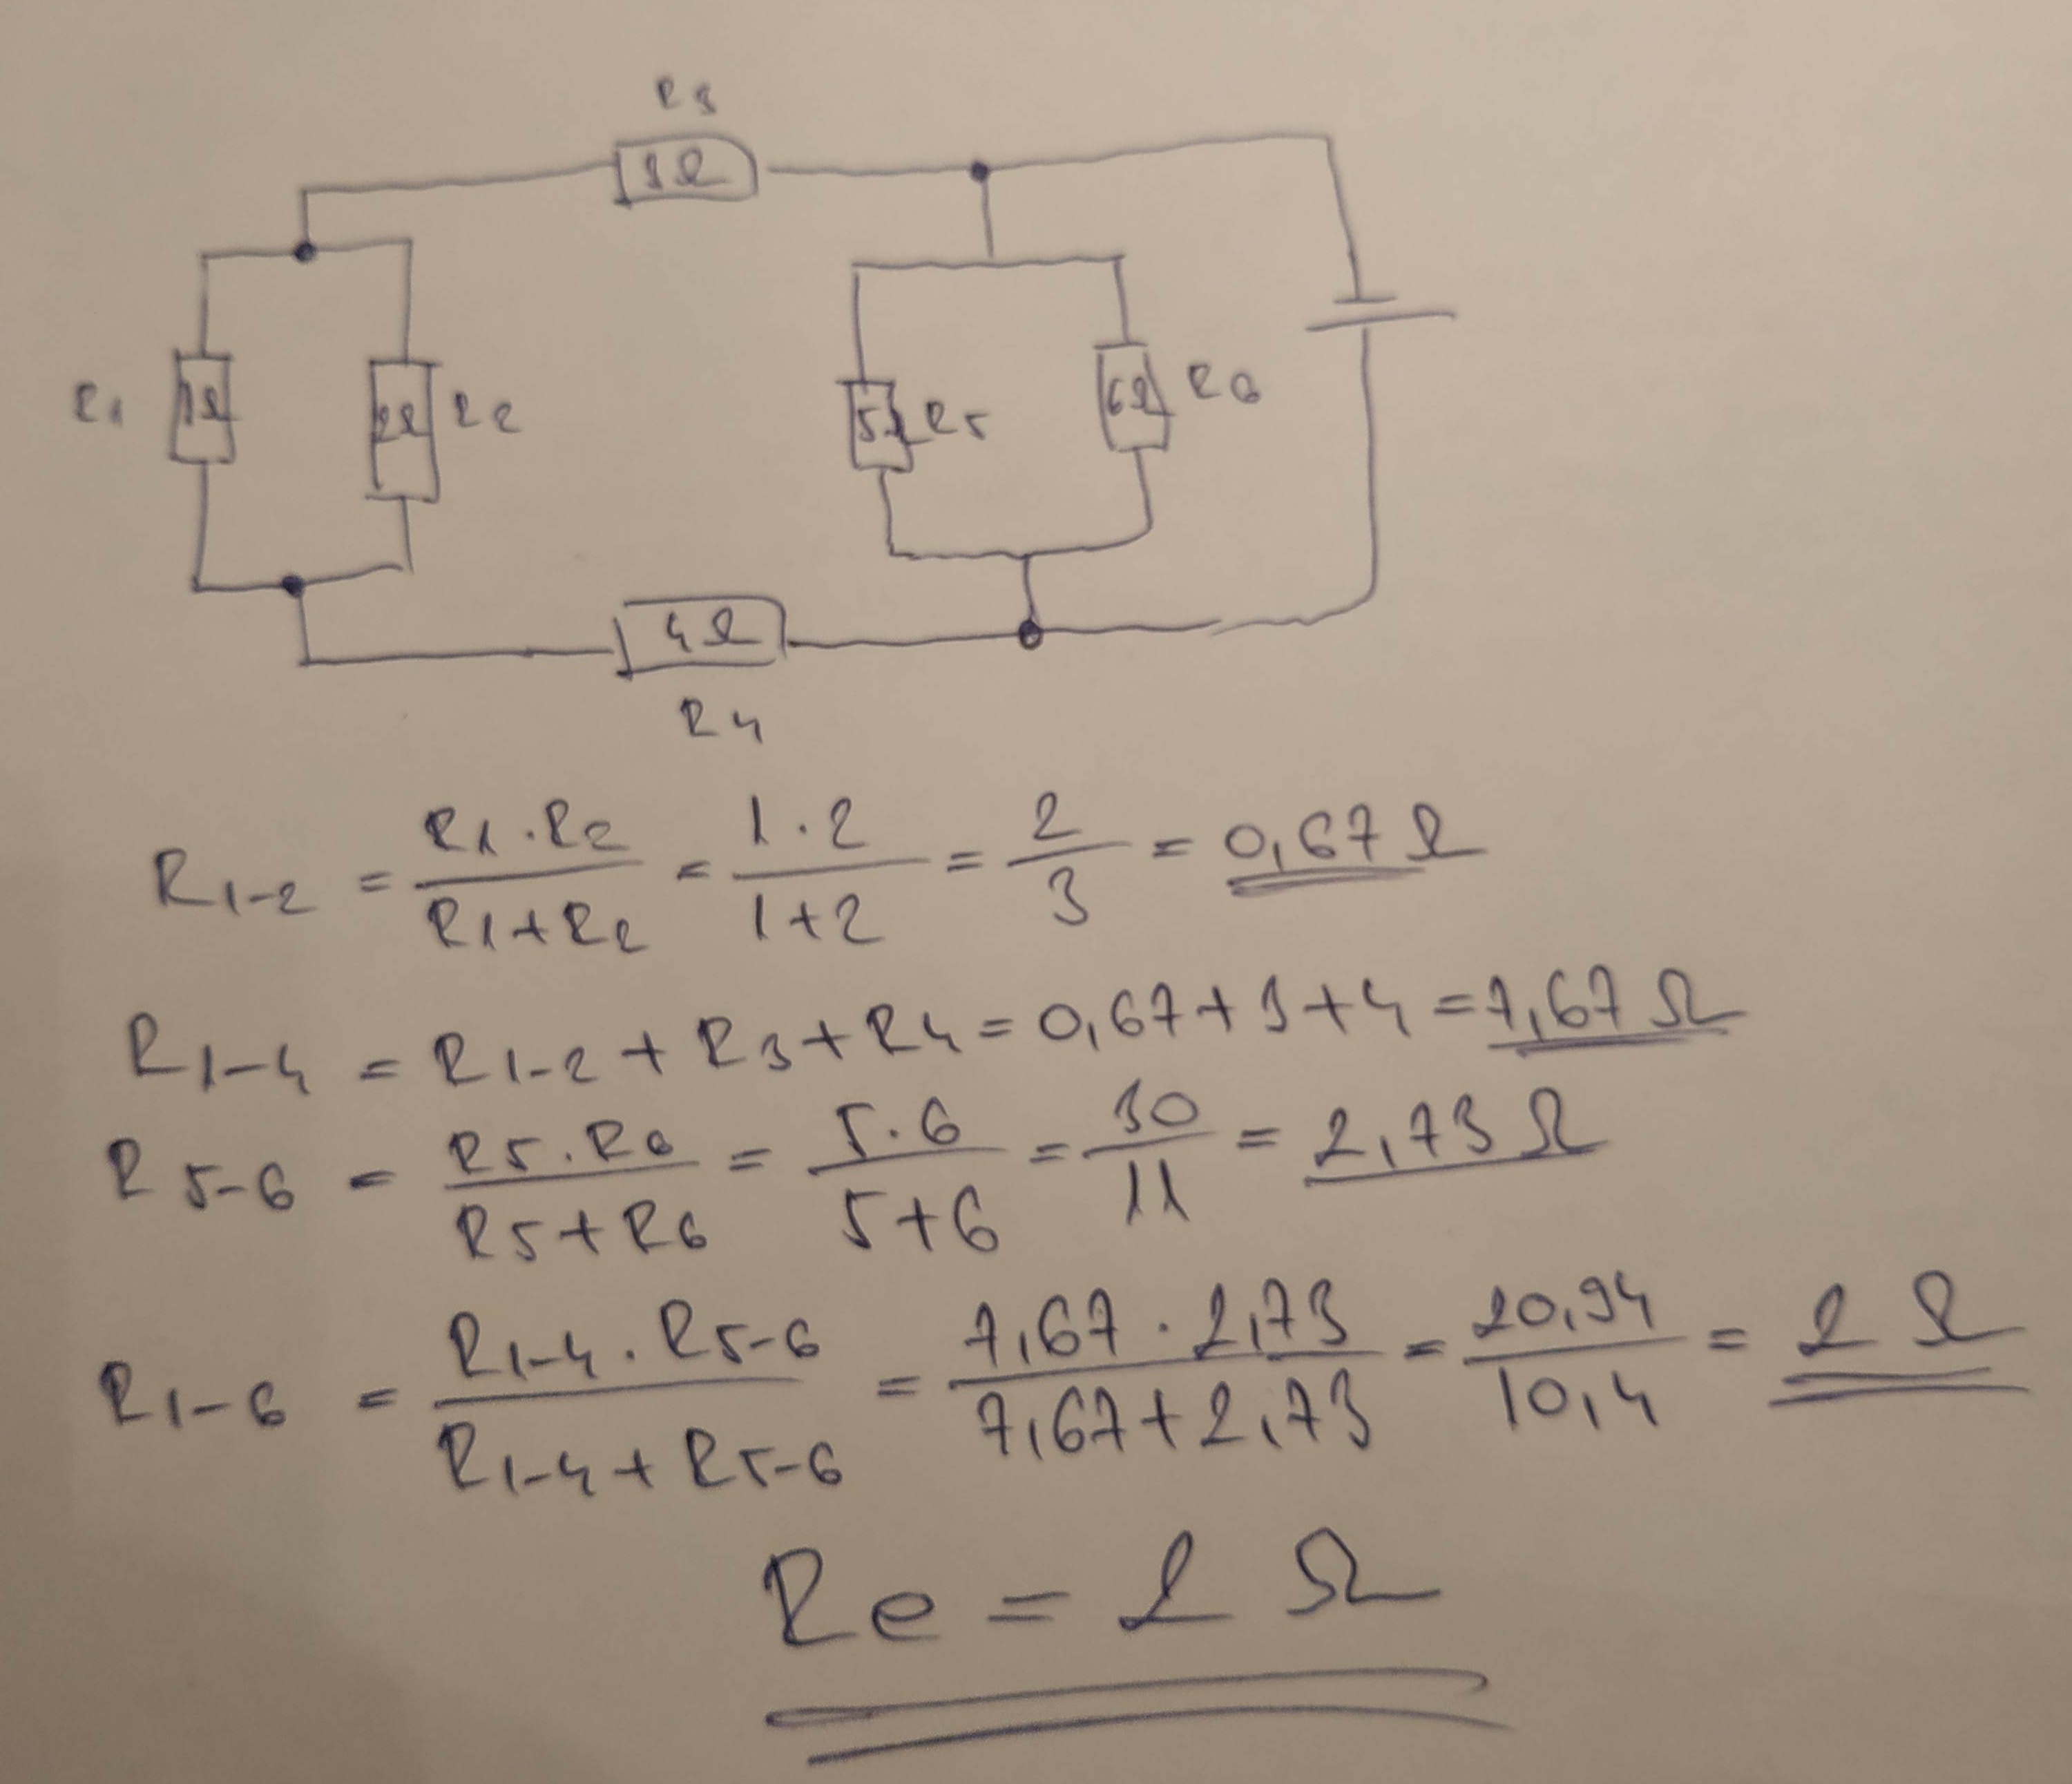 R3
3Ω
R1 1Ω 2Ω R2 5Ω R5 6Ω R6
4Ω
R4
R1-2 = R1·R2 / R1+R2 = 1·2 / 1+2 = 2 / 3 = 0,67 Ω
R1-4 = R1-2 + R3 + R4 = 0,67 + 3 + 4 = 7,67 Ω
R5-6 = R5·R6 / R5+R6 = 5·6 / 5+6 = 30 / 11 = 2,73 Ω
R1-6 = R1-4·R5-6 / R1-4+R5-6 = 7,67·2,73 / 7,67+2,73 = 20,94 / 10,4 = 2 Ω
Re = 2 Ω